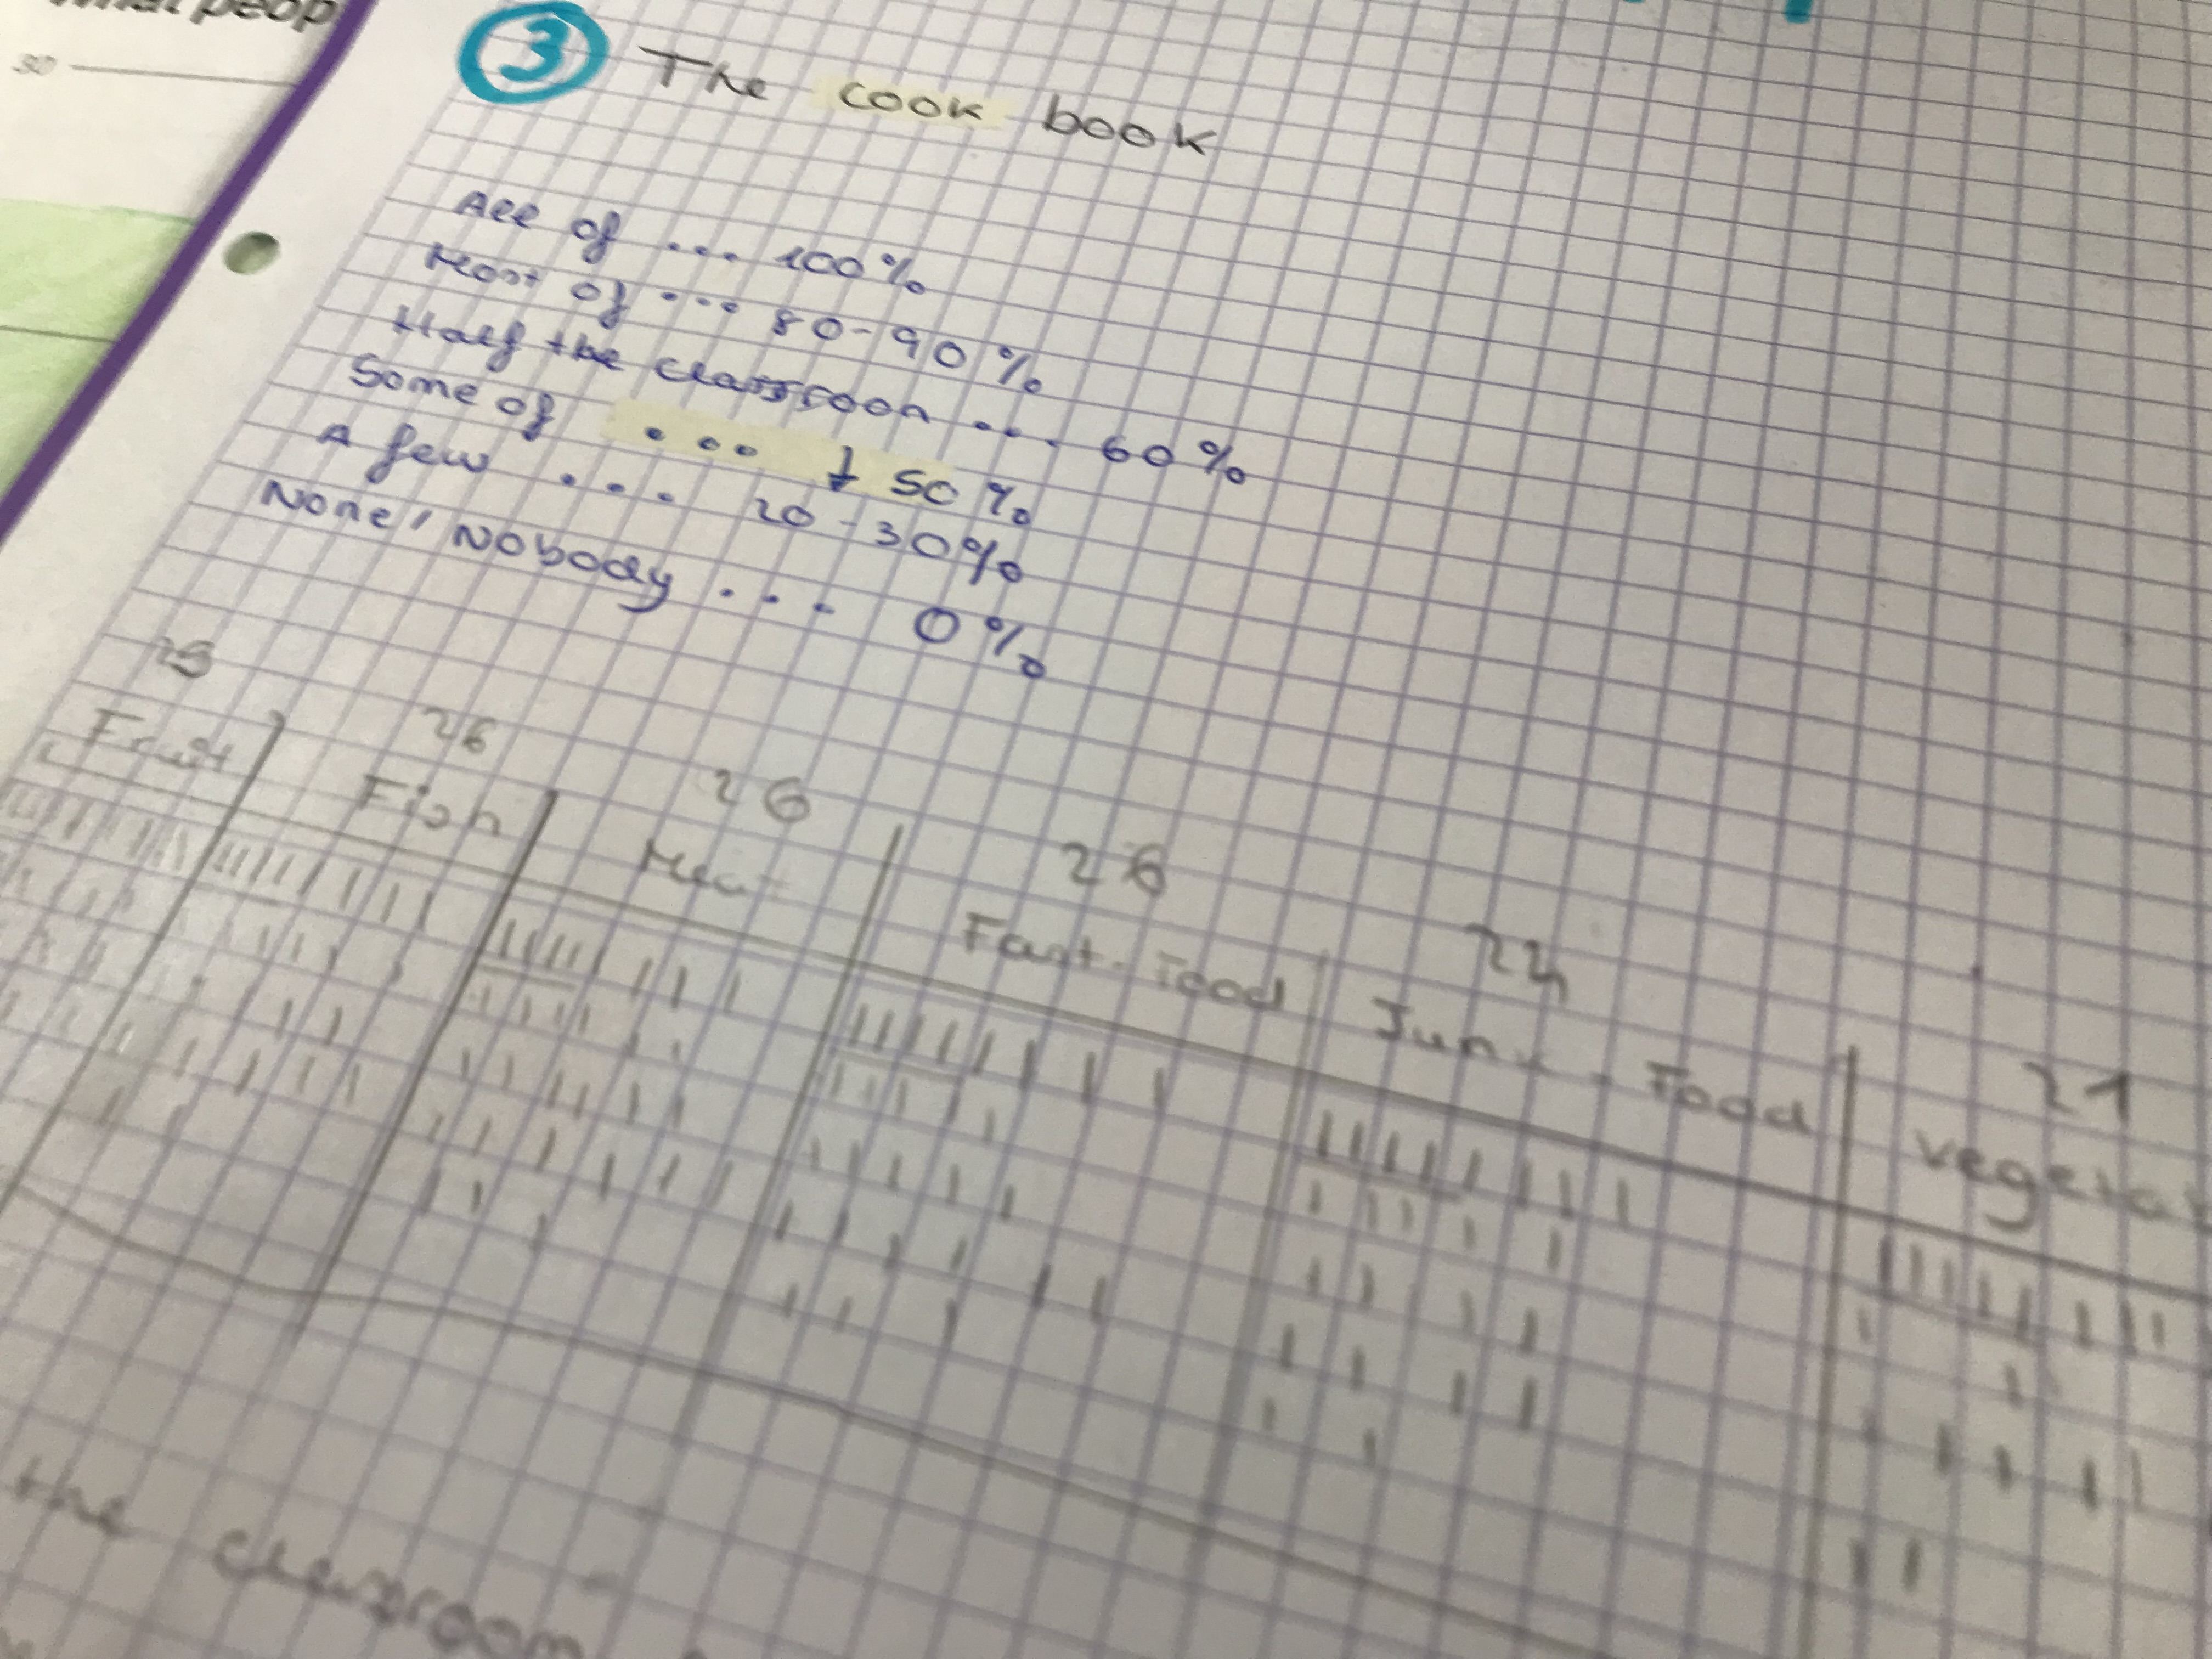 what peop
30
3 The cook book
All of ... 100%
Most of ... 80-90%
Half the classroon ... 60%
Some of ... ↓ 50%
A few ... 20-30%
None / Nobody ... 0%
26 26 26 21
Fruit Fish Meat Fast-Food Junk-Food
the classroom